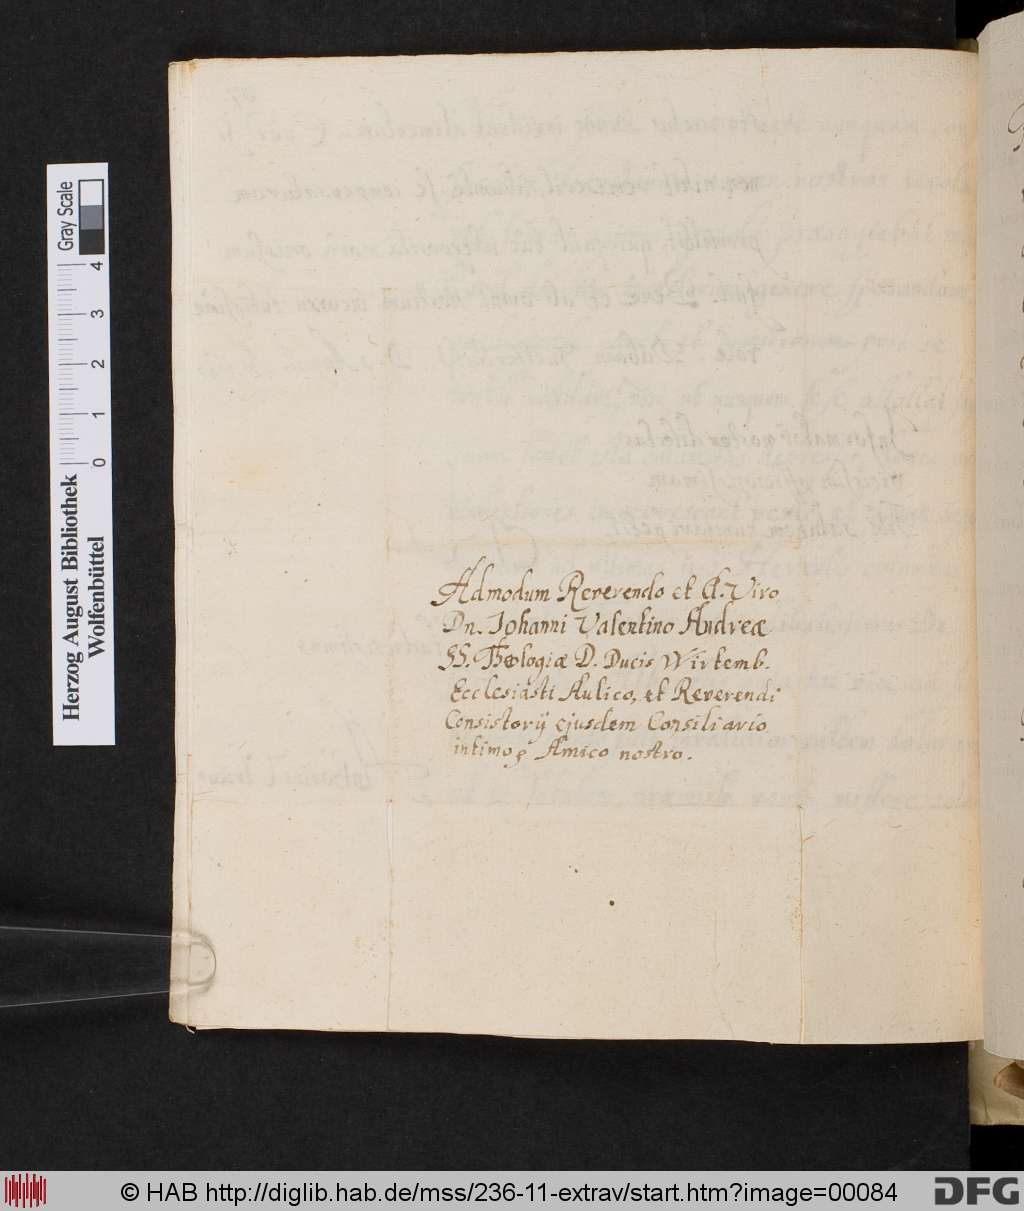 Gray Scale
4
3
2
1
0
Herzog August Bibliothek
Wolfenbüttel
Admodum Reverendo et Cl. Viro
Dn. Johanni Valentino Andreæ
SS. Theologiæ D. Ducis Wirtemb.
Ecclesiasti Aulico, et Reverendi
Consistorij ejusdem Consiliario
intimo, Amico nostro.
© HAB http://diglib.hab.de/mss/236-11-extrav/start.htm?image=00084
DFG